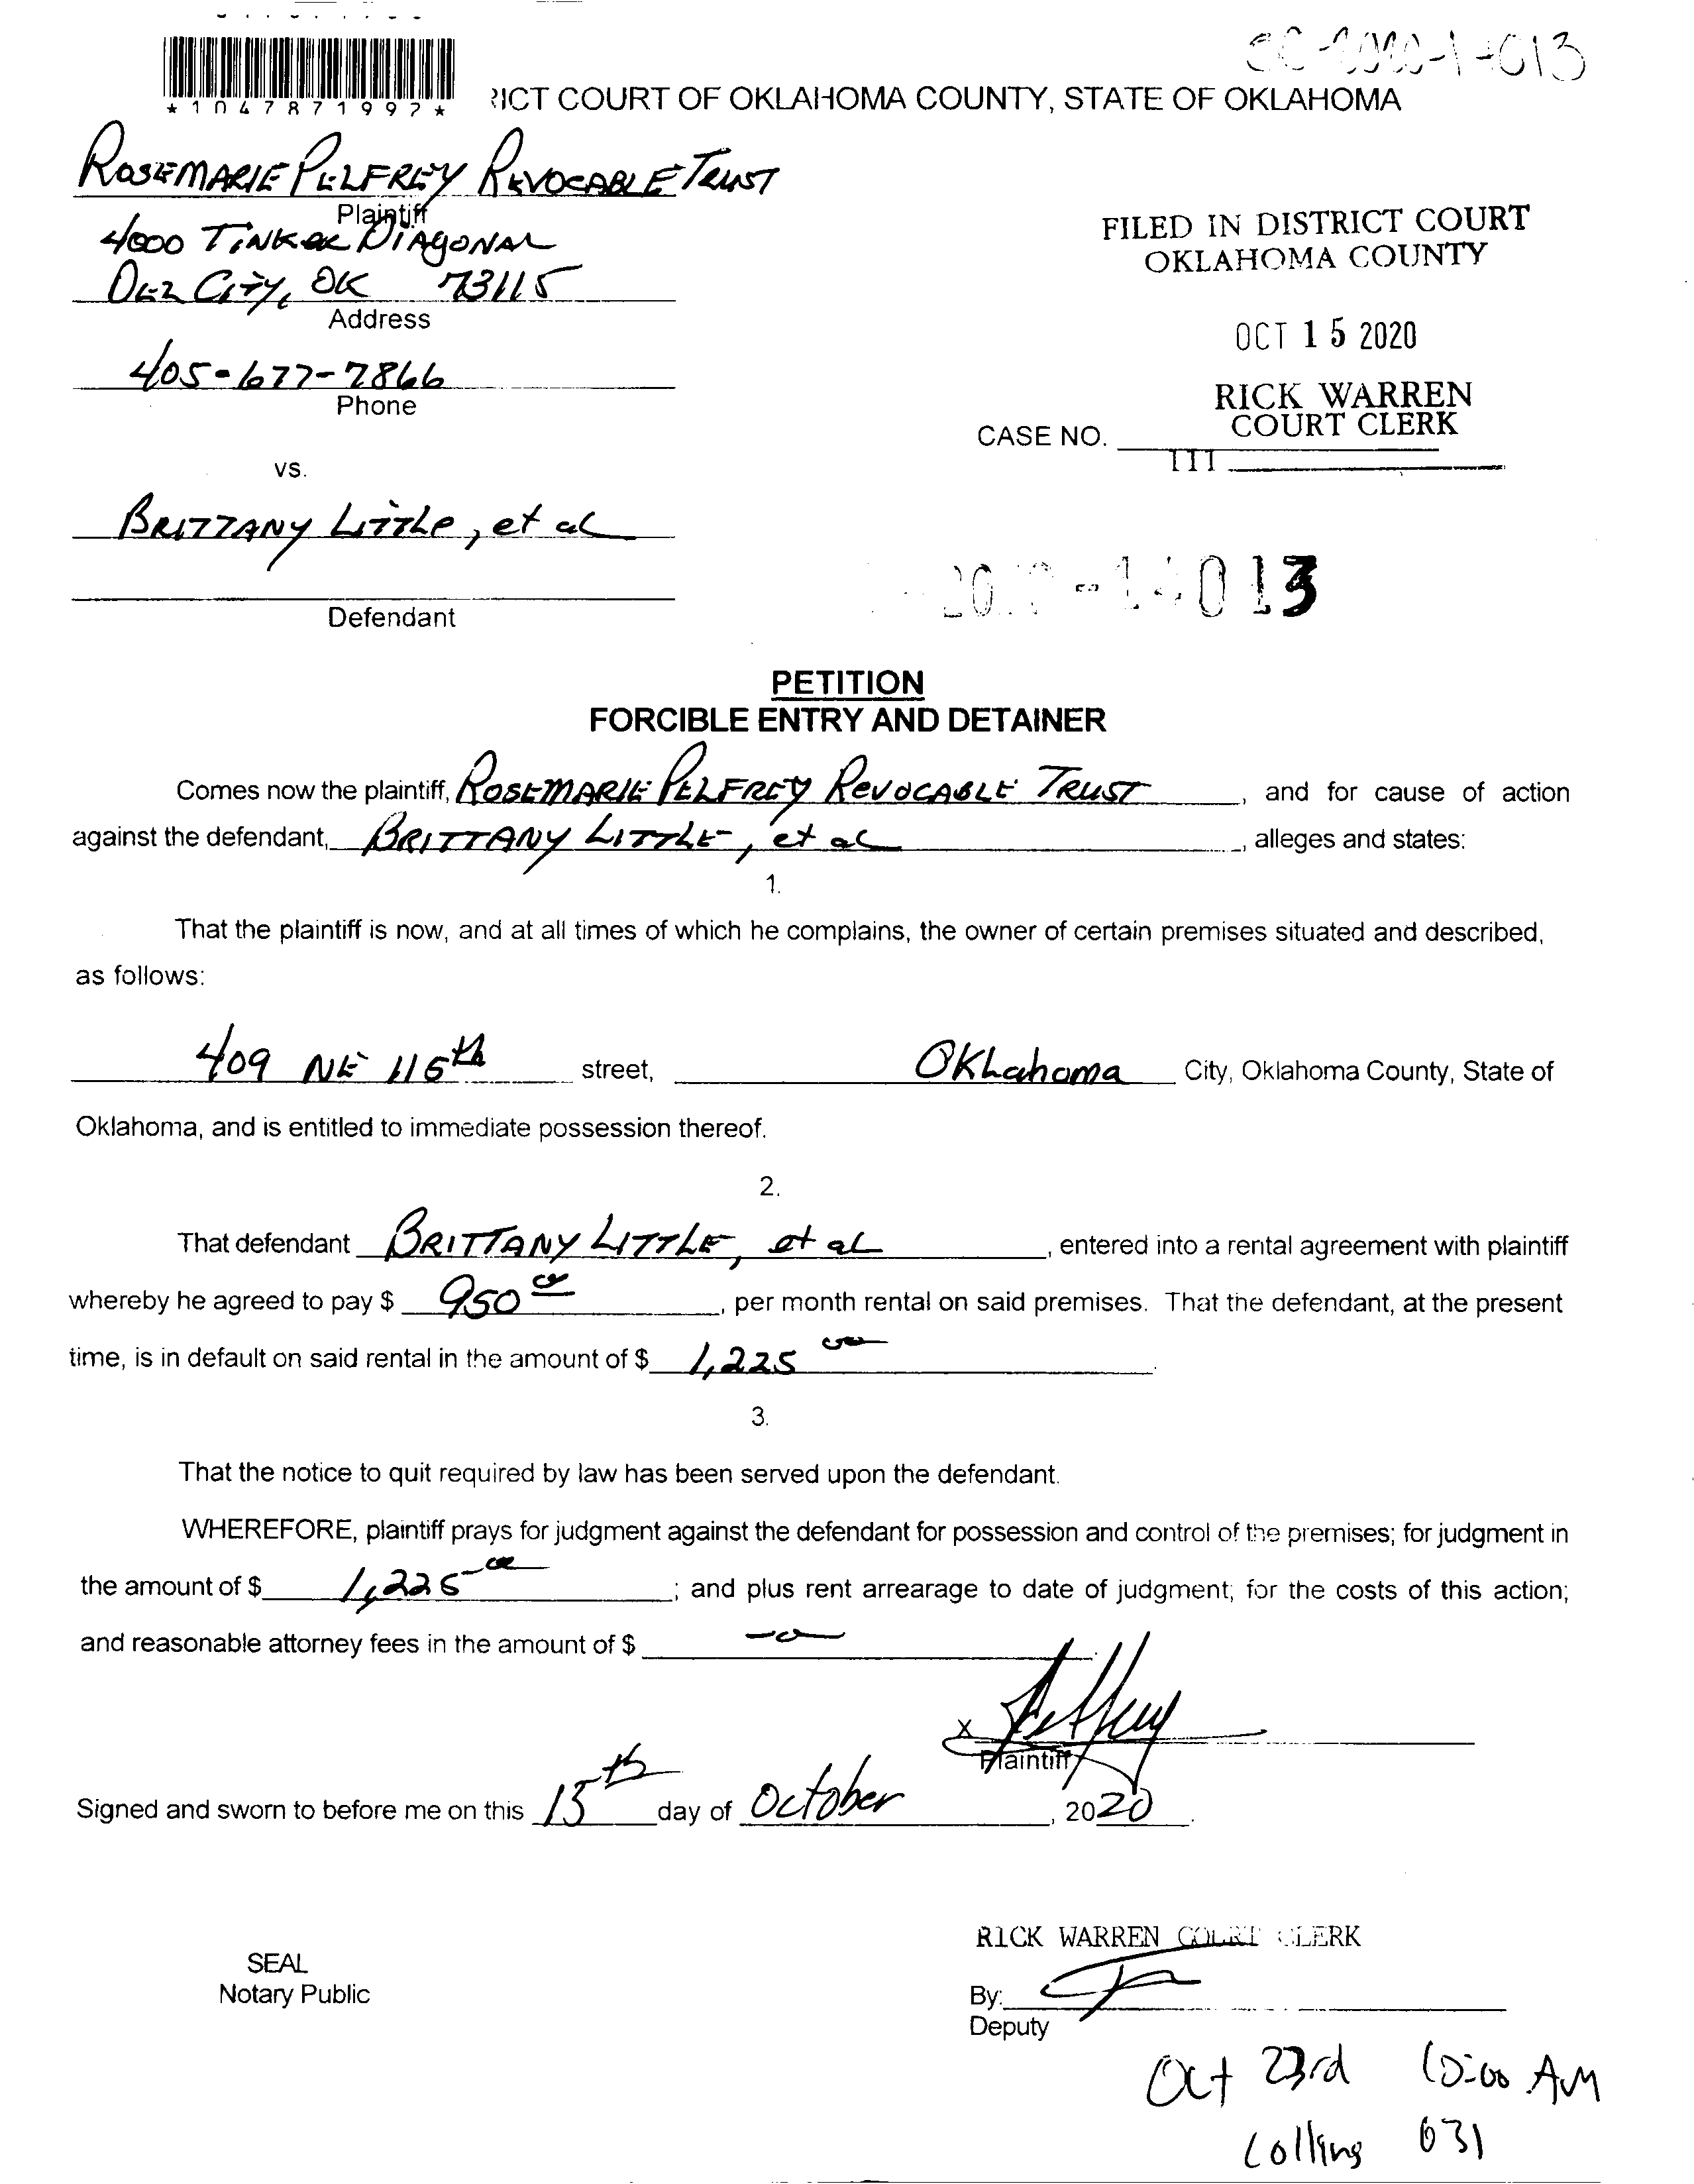 *1047871992*
SC-2020-14013
RICT COURT OF OKLAHOMA COUNTY, STATE OF OKLAHOMA
ROSEMARIE PELFREY REVOCABLE TRUST
Plaintiff
4000 TINKER DIAGONAL
DEL CITY, OK 73115
Address
405-677-7866
Phone
FILED IN DISTRICT COURT
OKLAHOMA COUNTY
OCT 15 2020
RICK WARREN
COURT CLERK
CASE NO.
vs.
BRITTANY LITTLE, et al
Defendant
2020-14013
PETITION
FORCIBLE ENTRY AND DETAINER
Comes now the plaintiff, ROSEMARIE PELFREY REVOCABLE TRUST, and for cause of action
against the defendant, BRITTANY LITTLE, et al, alleges and states:
1.
That the plaintiff is now, and at all times of which he complains, the owner of certain premises situated and described,
as follows:
409 NE 115th street, Oklahoma City, Oklahoma County, State of
Oklahoma, and is entitled to immediate possession thereof.
2.
That defendant BRITTANY LITTLE, et al, entered into a rental agreement with plaintiff
whereby he agreed to pay $ 950 00, per month rental on said premises. That the defendant, at the present
time, is in default on said rental in the amount of $ 1,225 00.
3.
That the notice to quit required by law has been served upon the defendant.
WHEREFORE, plaintiff prays for judgment against the defendant for possession and control of the premises; for judgment in
the amount of $ 1,225 00; and plus rent arrearage to date of judgment; for the costs of this action;
and reasonable attorney fees in the amount of $ -0-.
X
Plaintiff
Signed and sworn to before me on this 15th day of October, 2020.
RICK WARREN COURT CLERK
SEAL
Notary Public
By:
Deputy
Oct 23rd 10:00 AM
Collins 031